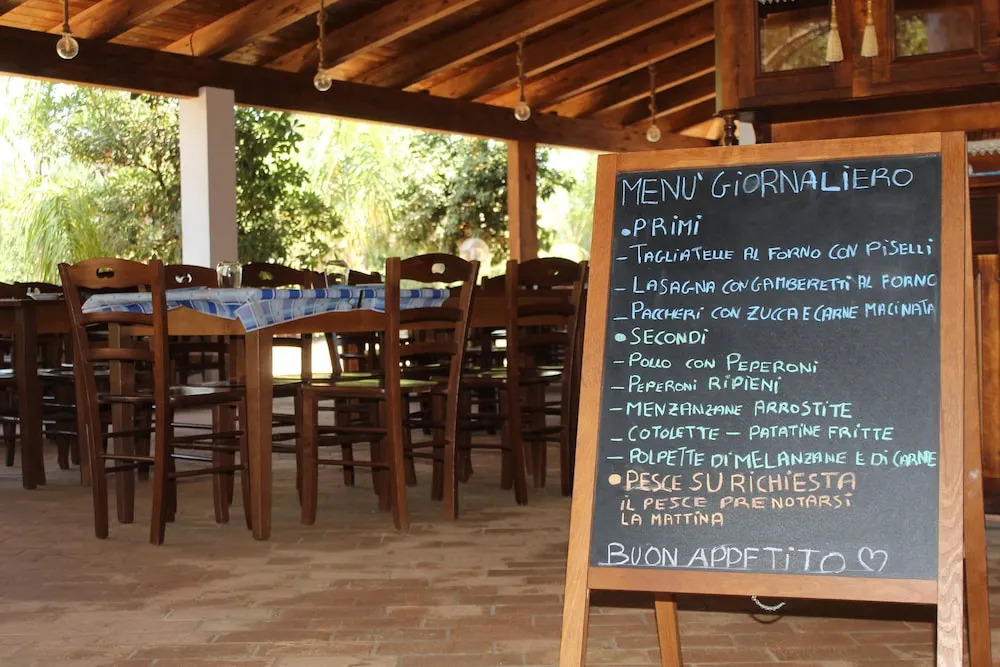 MENU' GIORNALIERO
• PRIMI
- TAGLIATELLE AL FORNO CON PISELLI
- LASAGNA CON GAMBERETTI AL FORNO
- PACCHERI CON ZUCCA E CARNE MACINATA
• SECONDI
- POLLO CON PEPERONI
- PEPERONI RIPIENI
- MENZANZANE ARROSTITE
- COTOLETTE - PATATINE FRITTE
- POLPETTE DI MELANZANE E DI CARNE
• PESCE SU RICHIESTA
IL PESCE PRENOTARSI
LA MATTINA
BUON APPETITO ♡